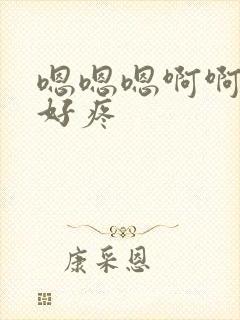 嗯嗯嗯啊啊
好疼
康采恩